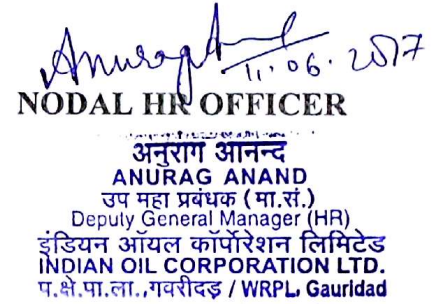 Anurag Anand
11.06.2017
NODAL HR OFFICER
अनुराग आनन्द
ANURAG ANAND
उप महा प्रबंधक (मा.सं.)
Deputy General Manager (HR)
इंडियन ऑयल कॉर्पोरेशन लिमिटेड
INDIAN OIL CORPORATION LTD.
प.क्षे.पा.ला.,गवरीदड़ / WRPL, Gauridad